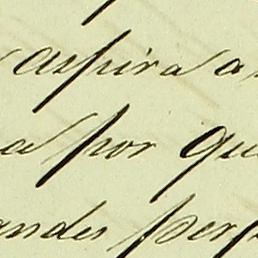 aspira a
a por que
andes per